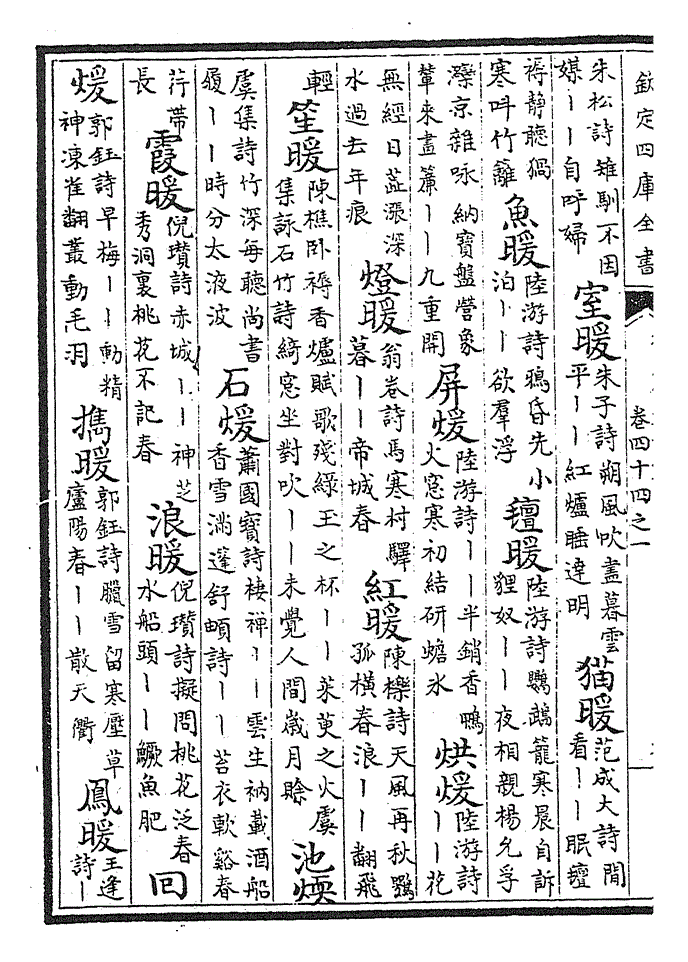 欽定四庫全書 卷四十四之一
朱松詩雉馴不因媒丨丨自呼婦 室暖 朱子詩朔風吹盡暮雲平丨丨紅爐睡達明 猫暖 范成大詩閒看丨丨眠氊
褥靜聽猧寒叫竹籬 魚暖 陸游詩鴉昏先小泊丨丨欲羣浮 氊暖 陸游詩鸚鵡籠寒晨自訴貍奴丨丨夜相親楊允孚
灤京雜咏納寶盤營象輦來畫簾丨丨九重開 屏煖 陸游詩丨丨半銷香鴨火窓寒初結研蟾氷 烘煖 陸游詩丨丨花
無經日蕋漲深水過去年痕 燈暖 翁卷詩馬寒村驛暮丨丨帝城春 紅暖 陳櫟詩天風再秋鶚孤横春浪丨丨翻飛
輕 笙暖 陳樵卧褥香爐賦歌殘綠玉之杯丨丨茱萸之火虞集詠石竹詩綺窓坐對吹丨丨未覺人間歲月賒 池煗
虞集詩竹深每聽尚書履丨丨時分太液波 石煖 蕭國寶詩棲禪丨丨雲生衲載酒船香雪滿蓬舒頔詩丨丨苔衣軟谿春
荇帶長 霞暖 倪瓚詩赤城丨丨神芝秀洞裏桃花不記春 浪暖 倪瓚詩擬問桃花泛春水船頭丨丨鱖魚肥 回
煖 郭鈺詩早梅丨丨動精神凍雀翻叢動毛羽 擕暖 郭鈺詩臘雪留寒壓草廬陽春丨丨散天衢 鳳暖 王逢詩丨